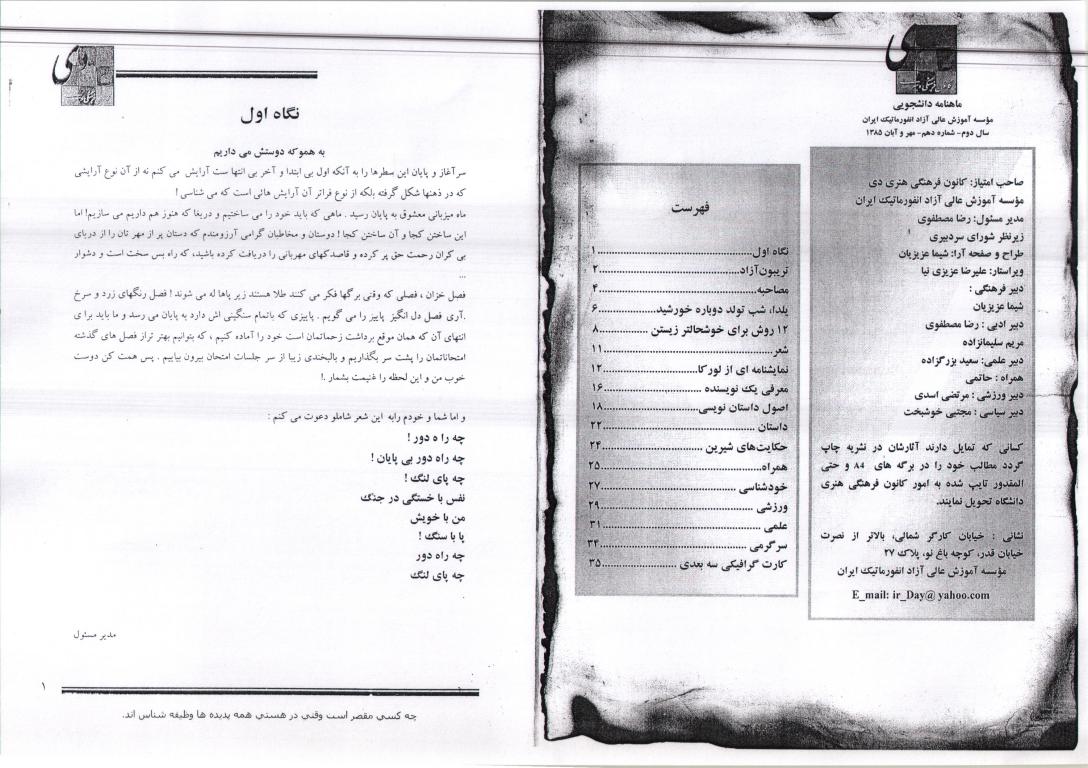 ماهنامه دانشجویی
مؤسسه آموزش عالی آزاد انفورماتیک ایران
سال دوم- شماره دهم- مهر و آبان ۱۳۸۵
صاحب امتیاز: کانون فرهنگی هنری دی
مؤسسه آموزش عالی آزاد انفورماتیک ایران
مدیر مسئول: رضا مصطفوی
زیرنظر شورای سردبیری
طراح و صفحه آرا: شیما عزیزیان
ویراستار: علیرضا عزیزی نیا
دبیر فرهنگی :
شیما عزیزیان
دبیر ادبی : رضا مصطفوی
مریم سلیمانزاده
دبیر علمی: سعید بزرگزاده
همراه : حاتمی
دبیر ورزشی : مرتضی اسدی
دبیر سیاسی : مجتبی خوشبخت
کسانی که تمایل دارند آثارشان در نشریه چاپ
گردد مطالب خود را در برگه های A۴ و حتی
المقدور تایپ شده به امور کانون فرهنگی هنری
دانشگاه تحویل نمایند.
نشانی : خیابان کارگر شمالی، بالاتر از نصرت
خیابان قدر، کوچه باغ نو، پلاک ۲۷
مؤسسه آموزش عالی آزاد انفورماتیک ایران
E_mail: ir_Day@ yahoo.com
فهرست
نگاه اول..........۱
تریبون‌آزاد..........۲
مصاحبه..........۴
یلدا، شب تولد دوباره خورشید..........۶
۱۲ روش برای خوشحالتر زیستن ..........۸
شعر..........۱۱
نمایشنامه ای از لورکا..........۱۲
معرفی یک نویسنده ..........۱۶
اصول داستان نویسی..........۱۸
داستان ..........۲۲
حکایت‌های شیرین ..........۲۴
همراه..........۲۵
خودشناسی ..........۲۷
ورزشی ..........۲۹
علمی ..........۳۱
سرگرمی ..........۳۴
کارت گرافیکی سه بعدی ..........۳۵
نگاه اول
به هموکه دوستش می داریم
سرآغاز و پایان این سطرها را به آنکه اول بی ابتدا و آخر بی انتها ست آرایش می کنم نه از آن نوع آرایشی
که در ذهنها شکل گرفته بلکه از نوع فراتر آن آرایش هائی است که می شناسی !
ماه میزبانی معشوق به پایان رسید . ماهی که باید خود را می ساختیم و دریغا که هنوز هم داریم می سازیم! اما
این ساختن کجا و آن ساختن کجا ! دوستان و مخاطبان گرامی آرزومندم که دستان پر از مهر تان را از دریای
بی کران رحمت حق پر کرده و قاصدکهای مهربانی را دریافت کرده باشید، که راه بس سخت است و دشوار
...
فصل خزان ، فصلی که وقتی برگها فکر می کنند طلا هستند زیر پاها له می شوند ! فصل رنگهای زرد و سرخ
.آری فصل دل انگیز پاییز را می گویم . پاییزی که باتمام سنگینی اش دارد به پایان می رسد و ما باید برا ی
انتهای آن که همان موقع برداشت زحماتمان است خود را آماده کنیم ، که بتوانیم بهتر تراز فصل های گذشته
امتحاناتمان را پشت سر بگذاریم و بالبخندی زیبا از سر جلسات امتحان بیرون بیاییم . پس همت کن دوست
خوب من و این لحظه را غنیمت بشمار .!
و اما شما و خودم رابه این شعر شاملو دعوت می کنم :
چه را ه دور !
چه راه دور بی پایان !
چه پای لنگ !
نفس با خستگی در جنگ
من با خویش
پا با سنگ !
چه راه دور
چه پای لنگ
مدیر مسئول
۱
چه کسی مقصر است وقتی در هستی همه پدیده ها وظیفه شناس اند.